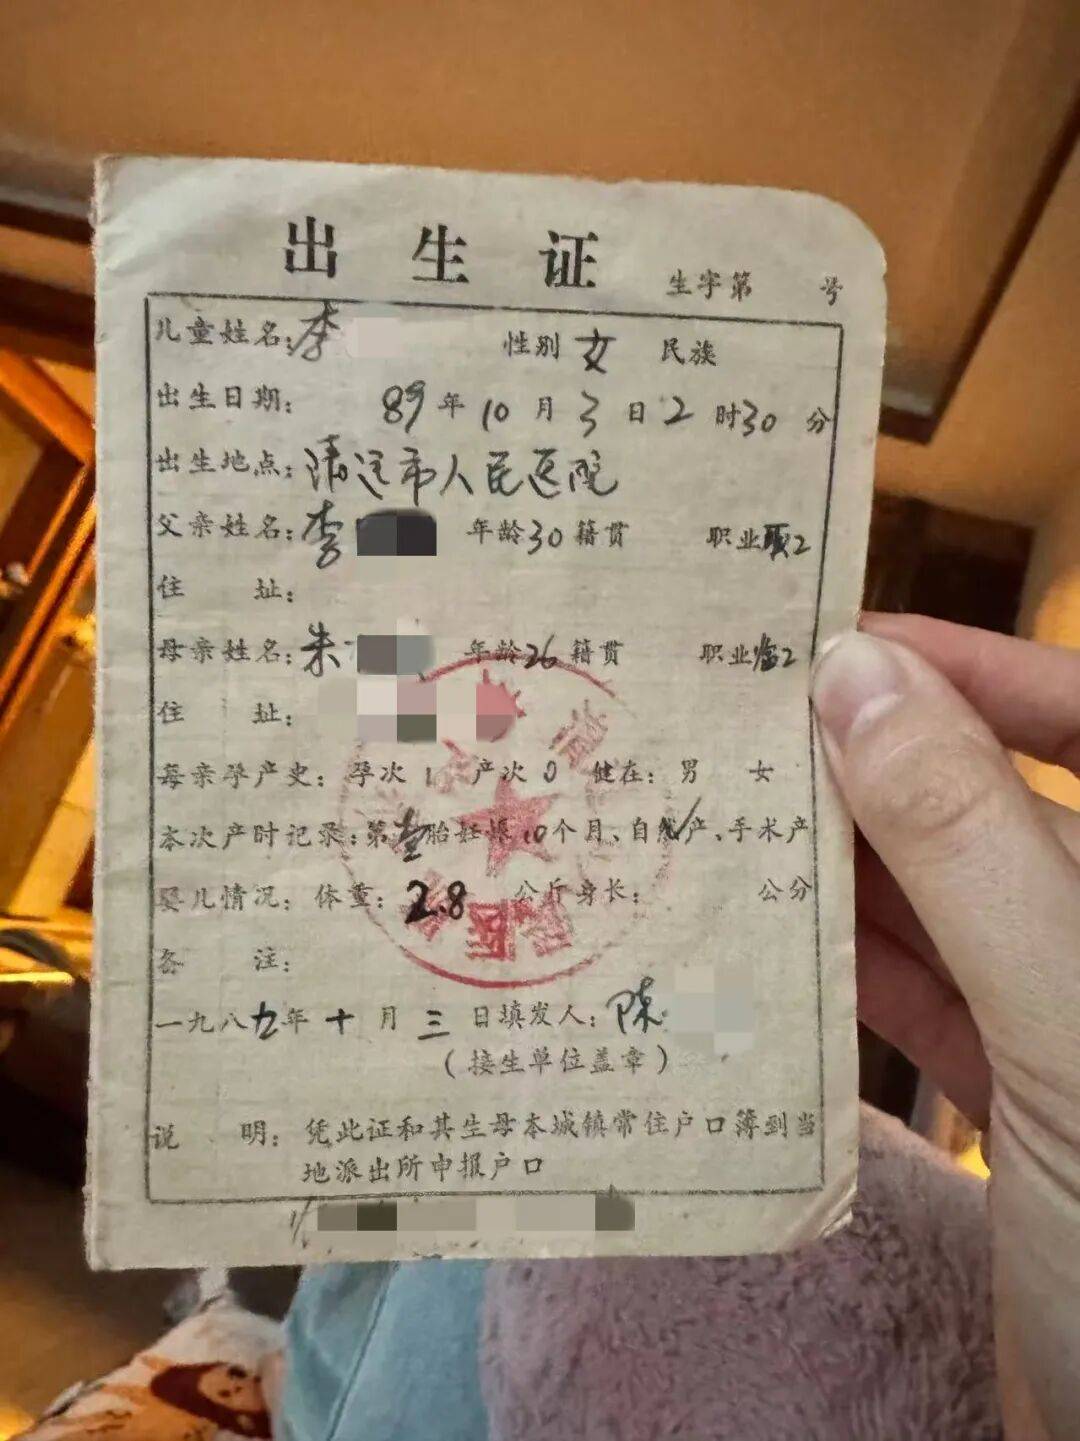 出生证 生字第 号
儿童姓名：李 性别 女 民族
出生日期： 89年10月3日2时30分
出生地点：清远市人民医院
父亲姓名：李 年龄30籍贯 职业
住 址：
母亲姓名：朱 年龄26籍贯 职业临工
住 址：
母亲孕产史：孕次1 产次0 健在：男 女
本次产时记录：第壹胎妊娠10个月、自然产、手术产
婴儿情况：体重：2.8 公斤身长： 公分
备 注：
一九八九年十月三日填发人：陈
（接生单位盖章）
说 明：凭此证和其生母本城镇常住户口簿到当
地派出所申报户口